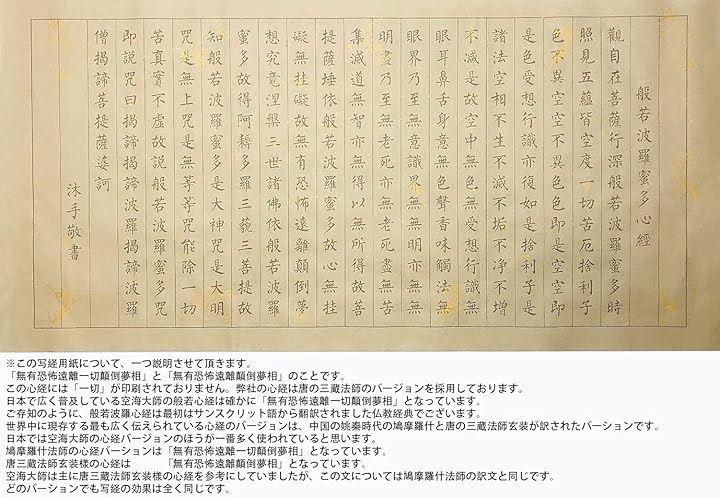 般若波羅蜜多心經
觀自在菩薩行深般若波羅蜜多時
照見五蘊皆空度一切苦厄捨利子
色不異空空不異色色即是空空即
是色受想行識亦復如是捨利子是
諸法空相不生不滅不垢不淨不增
不減是故空中無色無受想行識無
眼耳鼻舌身意無色聲香味觸法無
眼界乃至無意識界無無明亦無無
明盡乃至無老死亦無老死盡無苦
集滅道無智亦無得以無所得故菩
提薩埵依般若波羅蜜多故心無挂
礙無挂礙故無有恐怖遠離顛倒夢
想究竟涅槃三世諸佛依般若波羅
蜜多故得阿耨多羅三藐三菩提故
知般若波羅蜜多是大神咒是大明
咒是無上咒是無等等咒能除一切
苦真實不虛故說般若波羅蜜多咒
即說咒曰揭諦揭諦波羅揭諦波羅
僧揭諦菩提薩婆訶
沐手敬書
※この写経用紙について、一つ説明させて頂きます。
「無有恐怖遠離一切顛倒夢相」と「無有恐怖遠離顛倒夢相」のことです。
この心経には「一切」が印刷されておりません。弊社の心経は唐の三蔵法師のバージョンを採用しております。
日本で広く普及している空海大師の般若心経は確かに「無有恐怖遠離一切顛倒夢相」となっています。
ご存知のように、般若波羅心経は最初はサンスクリット語から翻訳されました仏教経典でございます。
世界中に現存する最も広く伝えられている心経のバージョンは、中国の姚秦時代の鳩摩羅什と唐の三蔵法師玄装が訳されたバーションです。
日本では空海大師の心経バージョンのほうが一番多く使われていると思います。
鳩摩羅什法師の心経バーションは「無有恐怖遠離一切顛倒夢相」となっています。
唐三蔵法師玄装様の心経は　　　「無有恐怖遠離顛倒夢相」となっています。
空海大師は主に唐三蔵法師玄装様の心経を参考にしていましたが、この文については鳩摩羅什法師の訳文と同じです。
どのバーションでも写経の効果は全く同じです。